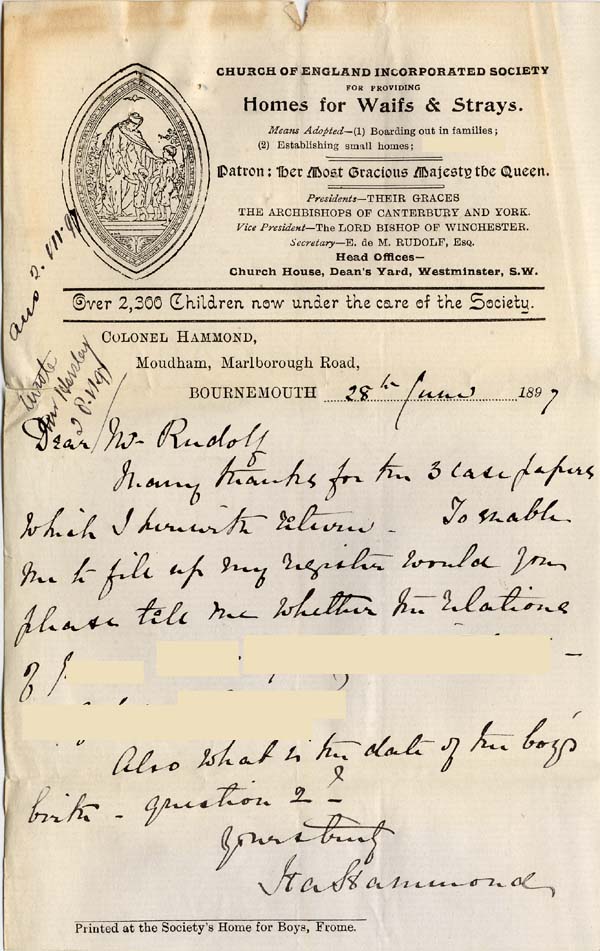 CHURCH OF ENGLAND INCORPORATED SOCIETY
FOR PROVIDING
Homes for Waifs & Strays.
Means Adopted—(1) Boarding out in families;
(2) Establishing small homes;
Patron: Her Most Gracious Majesty the Queen.
Presidents—THEIR GRACES
THE ARCHBISHOPS OF CANTERBURY AND YORK.
Vice President—The LORD BISHOP OF WINCHESTER.
Secretary—E. de M. RUDOLF, Esq.
Head Offices—
Church House, Dean's Yard, Westminster, S.W.
Over 2,300 Children now under the care of the Society.
COLONEL HAMMOND,
Moudham, Marlborough Road,
BOURNEMOUTH 28th June 1897
wrote
Dear Mr Rudolf
Many thanks for the 3 case papers
which I herewith return - To enable
me to fill up my register would you
please tell me whether the relations
of
Also what is the date of the boy's
birth - question 2?
Yours truly
Hammond
Printed at the Society's Home for Boys, Frome.